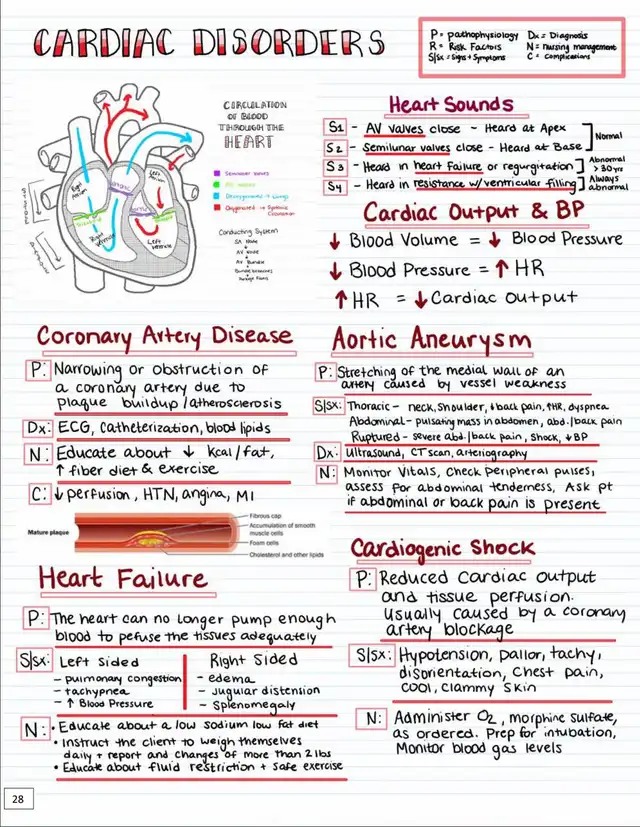 CARDIAC DISORDERS
P = pathophysiology Dx = Diagnosis
R = Risk Factors N = nursing management
S|Sx = Signs + Symptoms C = Complications
CIRCULATION
OF BLOOD
THROUGH THE
HEART
Semilunar valves
AV valves
Deoxygenated → Lungs
Oxygenated → Systemic
Circulation
Conducting System
SA Node
AV Node
AV Bundle
Bundle branches
Purkinje fibers
Right
Atrium
Left
Atrium
Right
Ventricle
Left
Ventricle
Heart Sounds
S1 - AV valves close - Heard at Apex
S2 - Semilunar valves close - Heard at Base
Normal
S3 - Heard in heart failure or regurgitation
Abnormal
> 30 yrs
S4 - Heard in resistance w/ventricular filling
Always
abnormal
Cardiac Output & BP
↓ Blood Volume = ↓ Blood Pressure
↓ Blood Pressure = ↑ HR
↑ HR = ↓ Cardiac output
Coronary Artery Disease
P: Narrowing or obstruction of
a coronary artery due to
plaque buildup/atherosclerosis
Dx: ECG, Catheterization, blood lipids
N: Educate about ↓ kcal/fat,
↑ fiber diet & exercise
C: ↓ perfusion, HTN, angina, MI
Mature plaque
Fibrous cap
Accumulation of smooth
muscle cells
Foam cells
Cholesterol and other lipids
Aortic Aneurysm
P: Stretching of the medial wall of an
artery caused by vessel weakness
S|Sx: Thoracic - neck, shoulder, ↓back pain, ↑HR, dyspnea
Abdominal - pulsating mass in abdomen, abd./back pain
Ruptured - severe abd./back pain, shock, ↓BP
Dx: Ultrasound, CT scan, arteriography
N: Monitor Vitals, Check peripheral pulses,
assess for abdominal tenderness, Ask pt
if abdominal or back pain is present
Heart Failure
P: The heart can no longer pump enough
blood to pefuse the tissues adequately
S|Sx: Left sided
- pulmonary congestion
- tachypnea
- ↑ Blood Pressure
Right sided
- edema
- Jugular distension
- Splenomegaly
N: • Educate about a low sodium low fat diet
• Instruct the client to weigh themselves
daily + report and changes of more than 2 lbs
• Educate about fluid restriction + safe exercise
Cardiogenic Shock
P: Reduced cardiac output
and tissue perfusion.
Usually caused by a coronary
artery blockage
S|Sx: Hypotension, pallor, tachy,
disorientation, chest pain,
cool, clammy skin
N: Administer O2, morphine sulfate,
as ordered. Prep for intubation,
Monitor blood gas levels
28